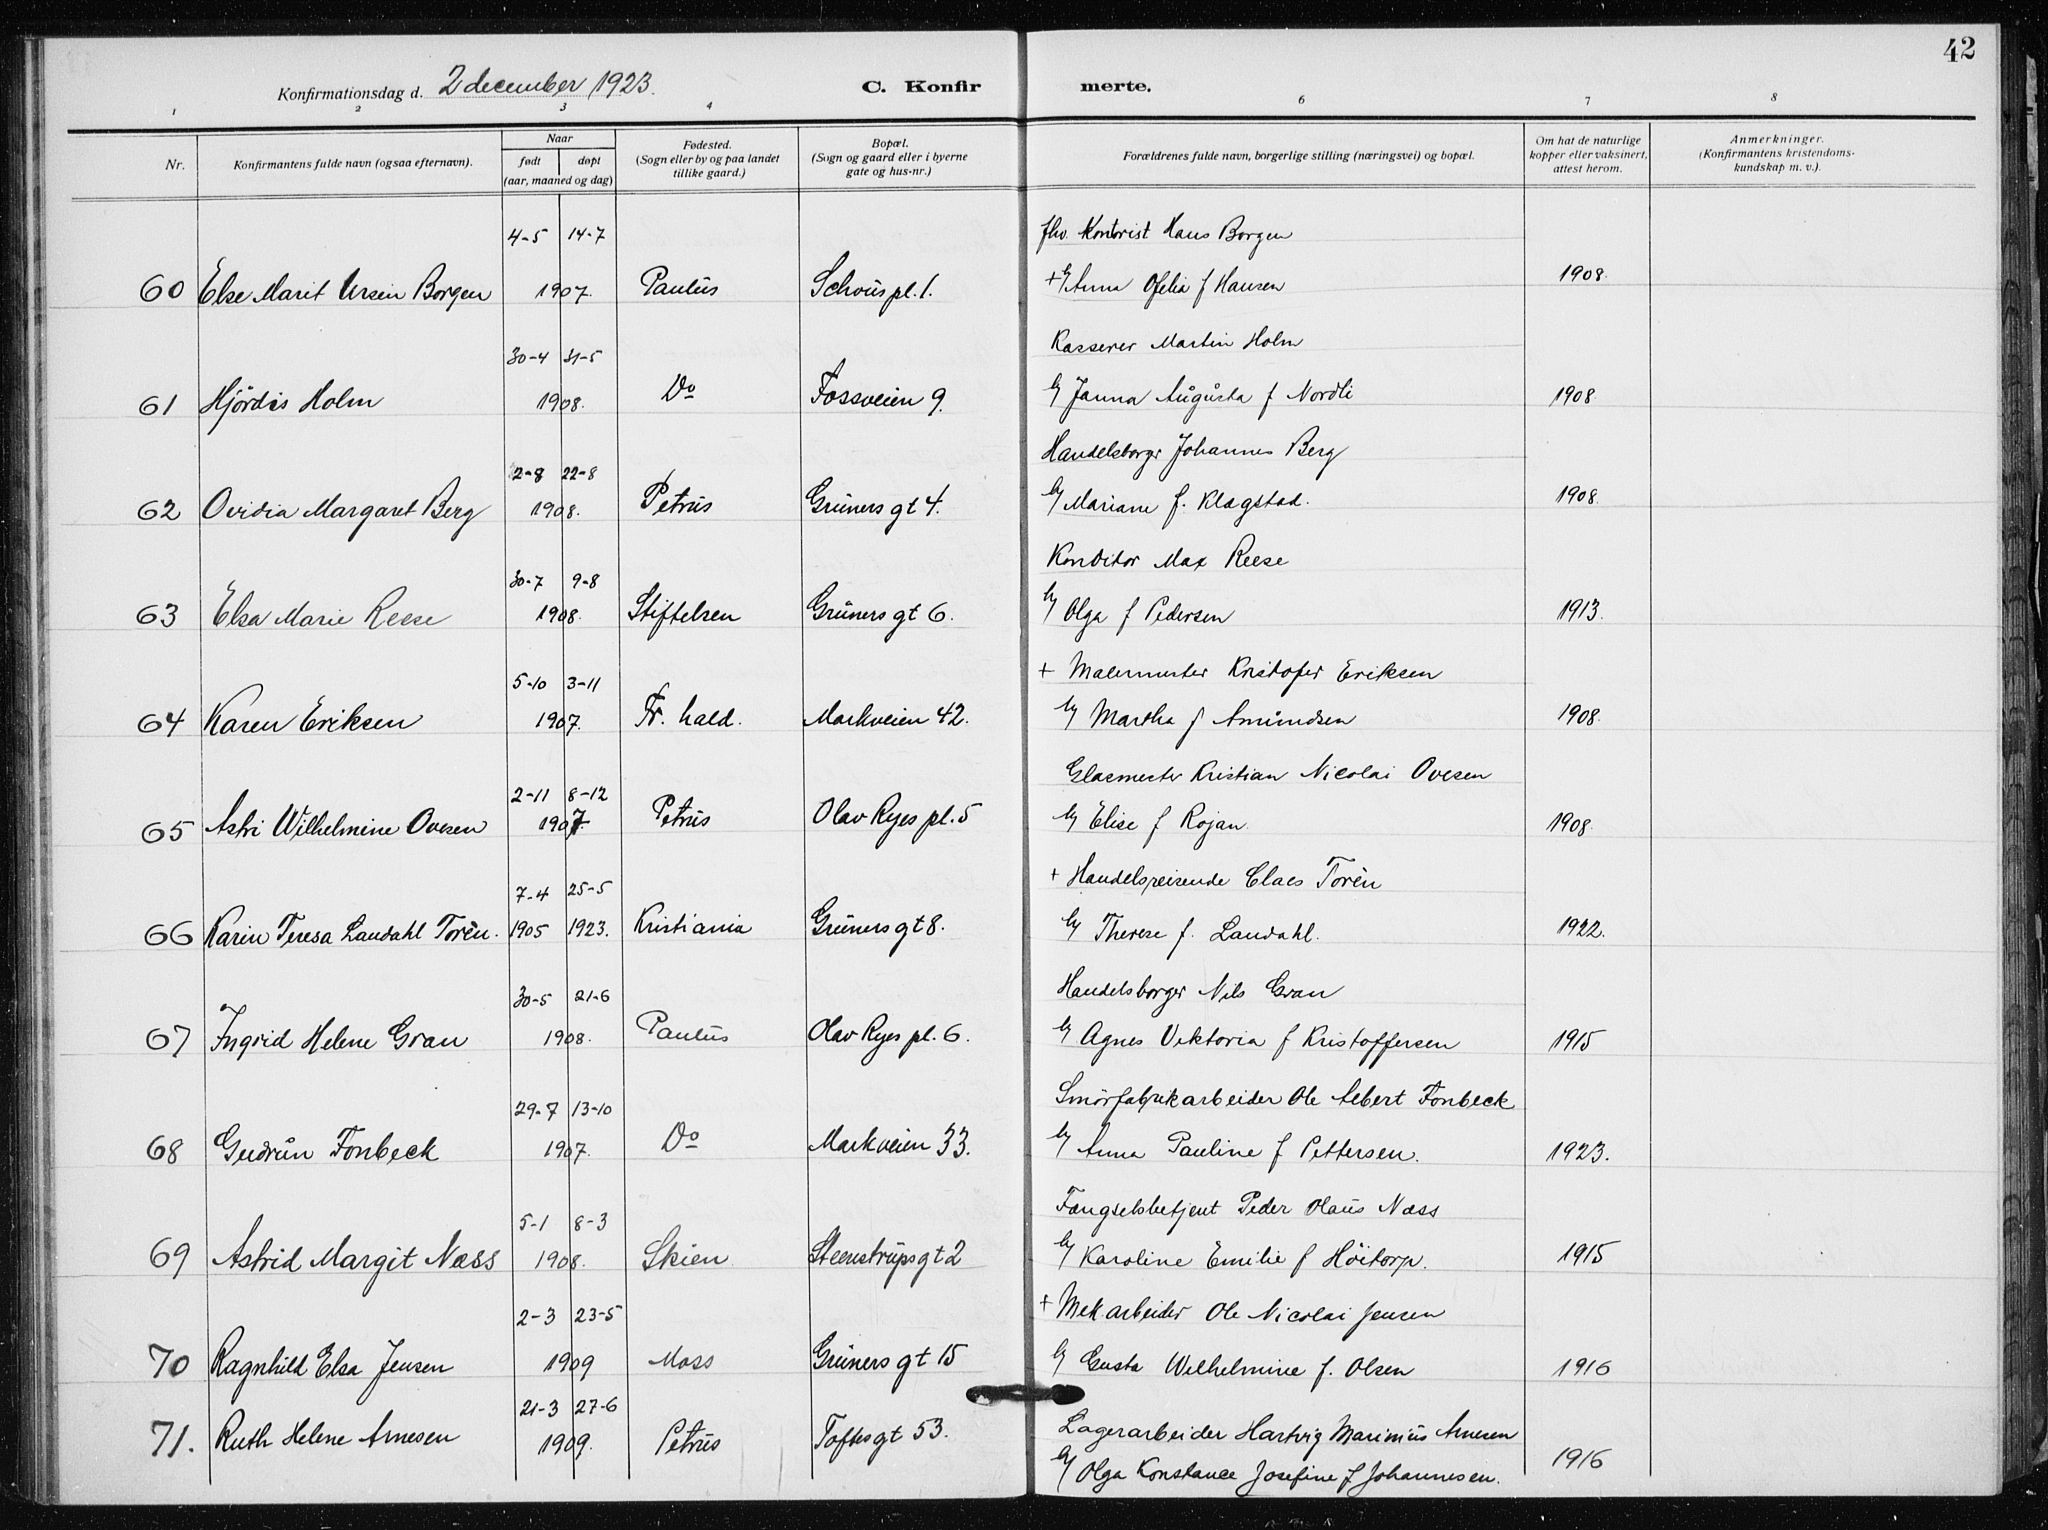 42
Konfirmationsdag d. 2 december 1923.
C. Konfirmerte.
1 2 3 4 6 7 8
Nr.
Konfirmantens fulde navn (ogsaa efternavn).
Naar
født døpt
(aar, maaned og dag)
Fødested.
(Sogn eller by og paa landet
tillike gaard.)
Bopæl.
(Sogn og gaard eller i byerne
gate og hus-nr.)
Forældrenes fulde navn, borgerlige stilling (næringsvei) og bopæl.
Om hat de naturlige
kopper eller vaksinert,
attest herom.
Anmerkninger.
(Konfirmantens kristendoms-
kundskap m. v.).
4-5 14-7 fhv. Kontorist Hans Borgen
60 Else Marit Ursin Borgen 1907. Paulus Schous pl. 1. + Anna Ofelia f Hansen 1908.
30-4 31-5 Kasserer Martin Holm
61 Hjördis Holm 1908. Do Fossveien 9. Janna Augusta f Nordli 1908.
2-8 22-8 Handelsborger Johannes Berg
62 Ovidia Margaret Berg 1908. Petrus Grüners gt 4. Mariane f. Klagstad. 1908.
30-7 9-8 Konditor Max Reese
63 Elsa Marie Reese 1908. Stiftelsen Grüners gt 6. Olga f Pedersen 1913.
5-10 3-11 + Malermester Kristofer Eriksen
64 Karen Eriksen 1907. Fr. hald. Markveien 42. Martha f Amundsen 1908.
2-11 8-12 Glasmester Kristian Nicolai Ovesen
65 Astri Wilhelmine Ovesen 1907. Petrus Olav Ryes pl. 5 Elise f Rojan. 1908.
7-4 25-5 + Handelsreisende Claes Torèn
66 Karin Teresa Landahl Torèn. 1905 1923. Kristiania Grüners gt 8. Therese f. Landahl. 1922.
30-5 21-6 Handelsborger Nils Gran
67 Ingrid Helene Gran 1908. Paulus Olav Ryes pl. 6. Agnes Viktoria f Kristoffersen 1915
29-7 13-10 Smörfabrikarbeider Ole Albert Fonbeck
68 Gudrun Fonbeck 1907. Do Markveien 33. Anna Pauline f Pettersen. 1923.
5-1 8-3 Fængselsbetjent Peder Olaus Næss
69 Astrid Margit Næss 1908. Skien Steenstrups gt 2 Karoline Emilie f Höitorp. 1915
2-3 23-5 + Mek. arbeider Ole Nicolai Jensen
70 Ragnhild Elsa Jensen 1909 Moss Grüners gt 15 Gusta Wilhelmine f. Olsen 1916
21-3 27-6 Lagerarbeider Hartvig Marinius Arnesen
71. Ruth Helene Arnesen 1909. Petrus Toftes gt 53. Olga Konstance Josefine f Johannesen. 1916